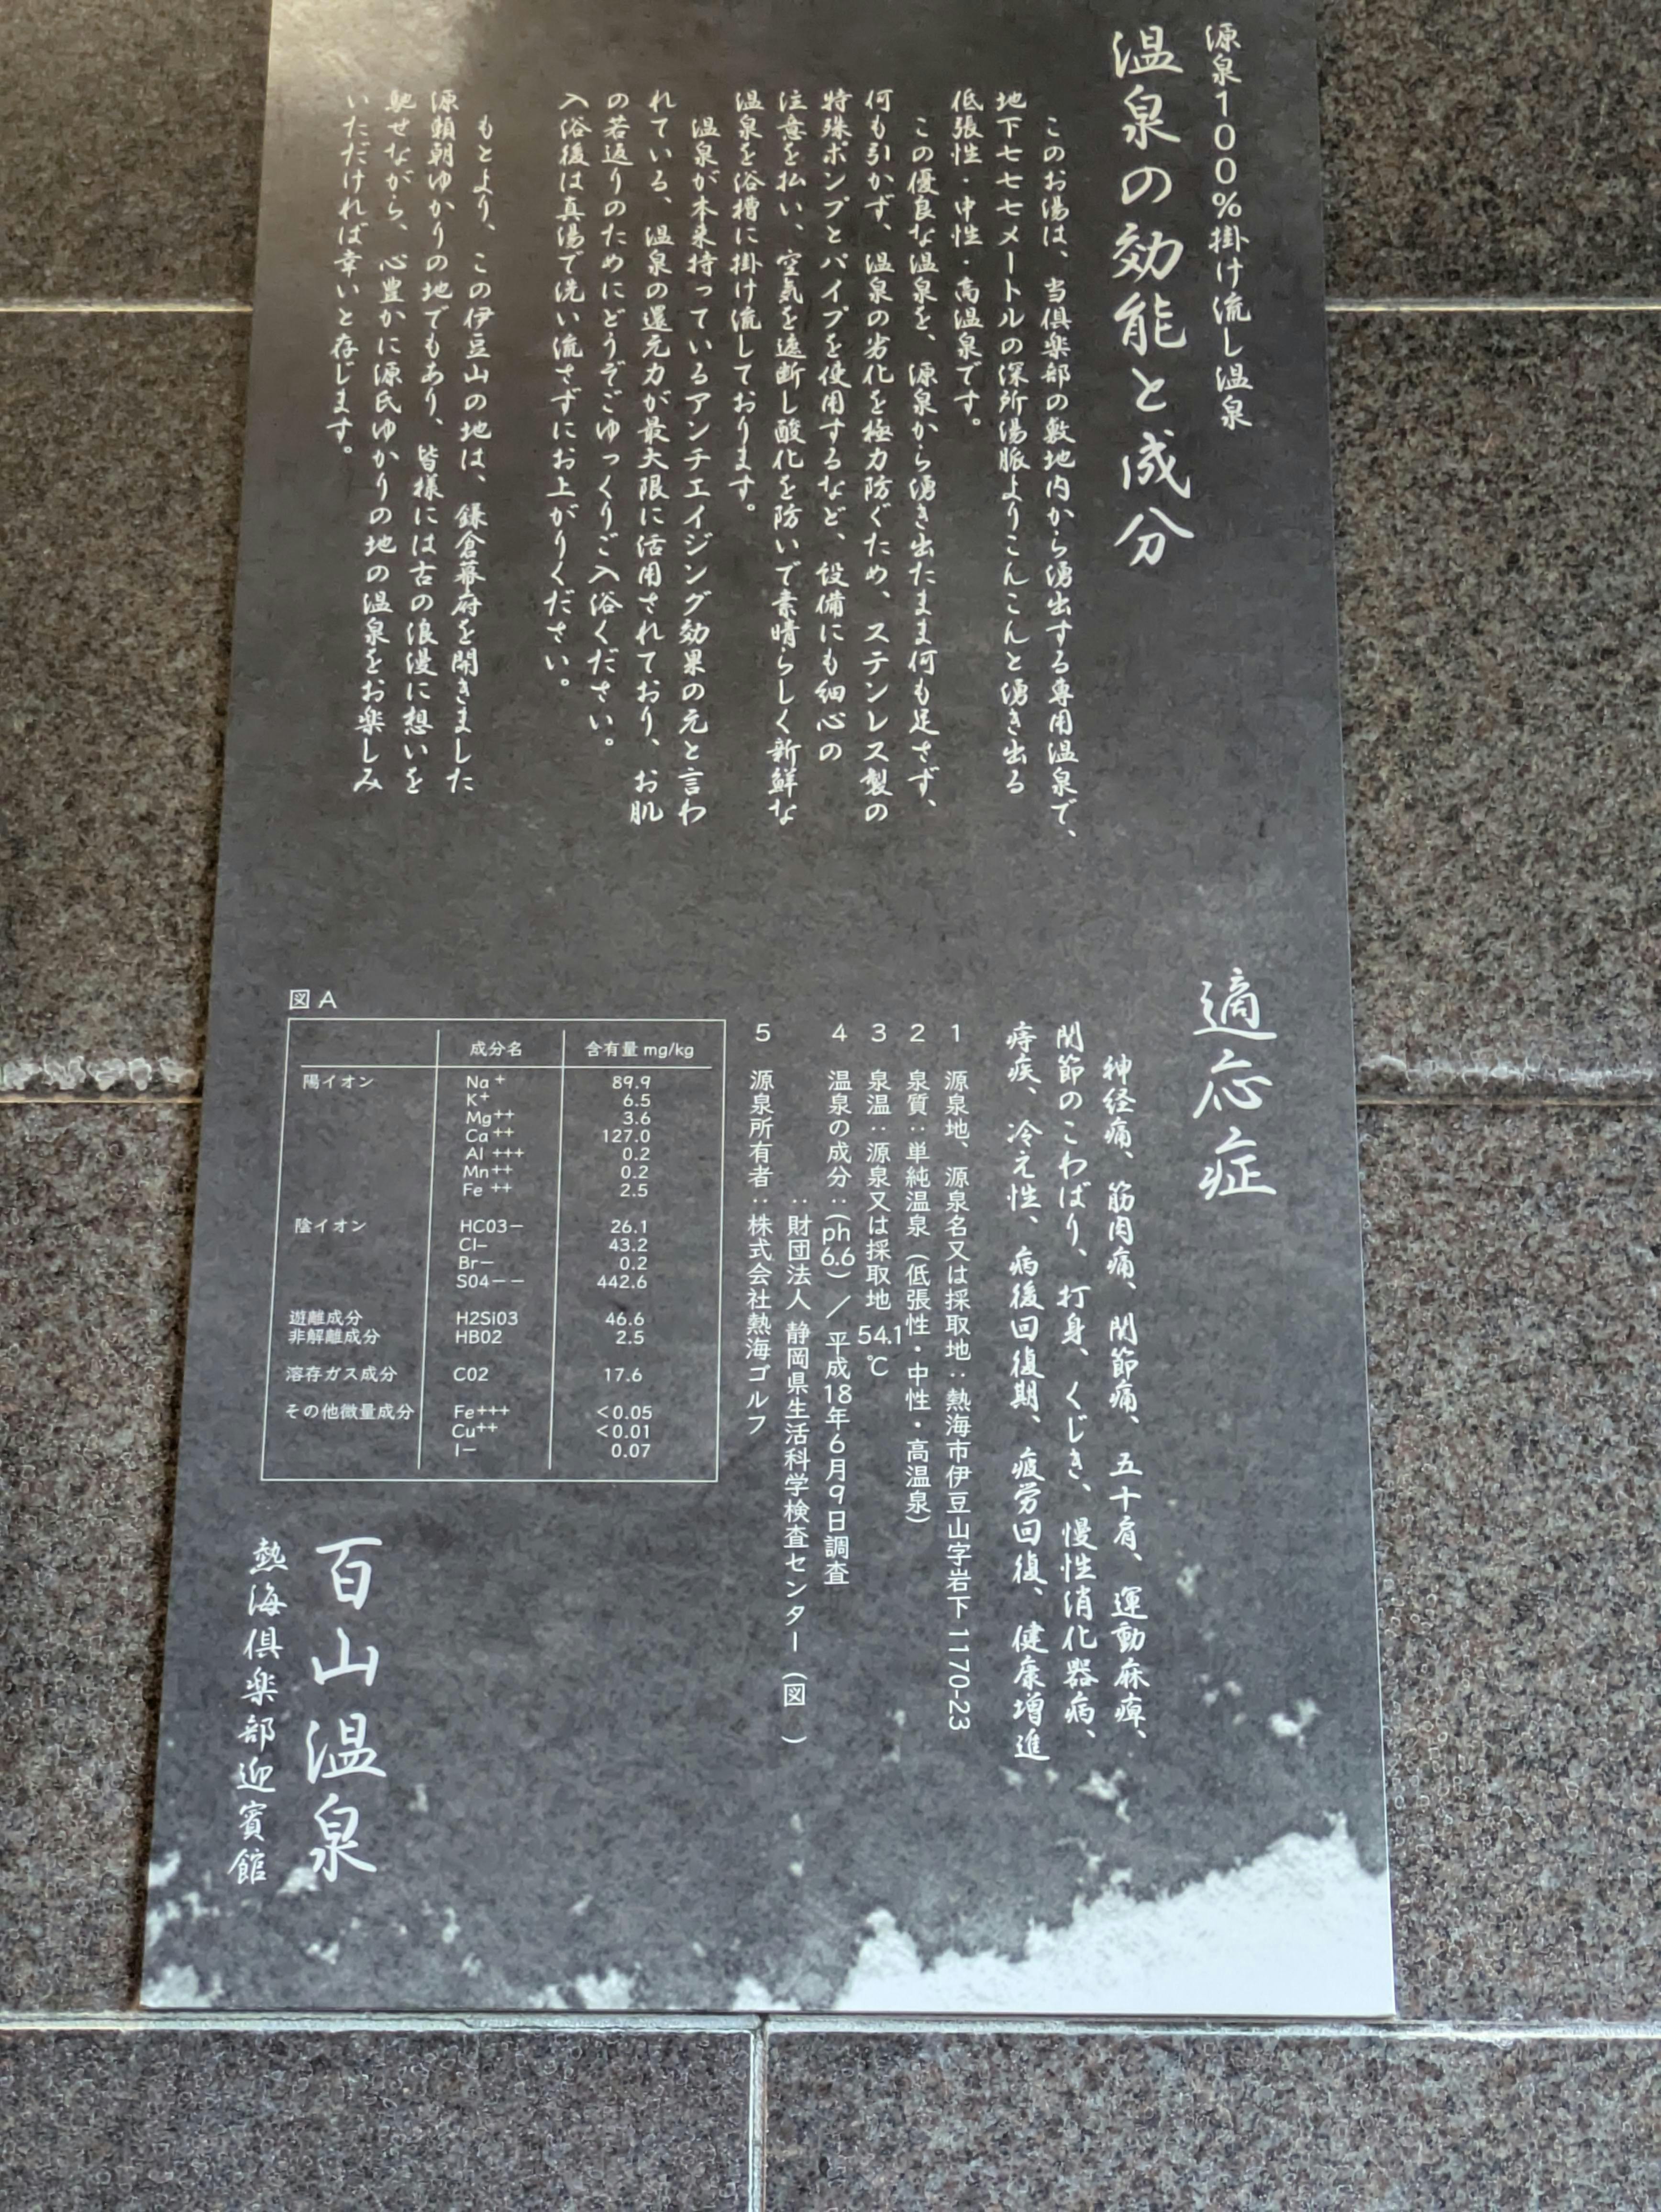 源泉100%掛け流し温泉
温泉の効能と成分
このお湯は、当倶楽部の敷地内から湧出する専用温泉で、
地下七七七メートルの深所湯脈よりこんこんと湧き出る
低張性・中性・高温泉です。
この優良な温泉を、源泉から湧き出たまま何も足さず、
何も引かず、温泉の劣化を極力防ぐため、ステンレス製の
特殊ポンプとパイプを使用するなど、設備にも細心の
注意を払い、空気を遮断し酸化を防いで素晴らしく新鮮な
温泉を浴槽に掛け流しております。
温泉が本来持っているアンチエイジング効果の元と言わ
れている、温泉の還元力が最大限に活用されており、お肌
の若返りのためにどうぞごゆっくりご入浴ください。
入浴後は真湯で洗い流さずにお上がりください。
もとより、この伊豆山の地は、鎌倉幕府を開きました
源頼朝ゆかりの地でもあり、皆様には古の浪漫に想いを
馳せながら、心豊かに源氏ゆかりの地の温泉をお楽しみ
いただければ幸いと存じます。
適応症
神経痛、筋肉痛、関節痛、五十肩、運動麻痺、
関節のこわばり、打身、くじき、慢性消化器病、
痔疾、冷え性、病後回復期、疲労回復、健康増進
1 源泉地、源泉名又は採取地:熱海市伊豆山字岩下1170-23
2 泉質:単純温泉(低張性・中性・高温泉)
3 泉温:源泉又は採取地 54.1℃
4 温泉の成分:(ph6.6)/平成18年6月9日調査
:財団法人 静岡県生活科学検査センター(図 )
5 源泉所有者:株式会社熱海ゴルフ
図A
成分名 含有量 mg/kg
陽イオン Na+ 89.9
K+ 6.5
Mg++ 3.6
Ca++ 127.0
Al+++ 0.2
Mn++ 0.2
Fe++ 2.5
陰イオン HCO3− 26.1
Cl− 43.2
Br− 0.2
SO4−− 442.6
遊離成分 H2SiO3 46.6
非解離成分 HBO2 2.5
溶存ガス成分 CO2 17.6
その他微量成分 Fe+++ <0.05
Cu++ <0.01
I− 0.07
百山温泉
熱海倶楽部迎賓館